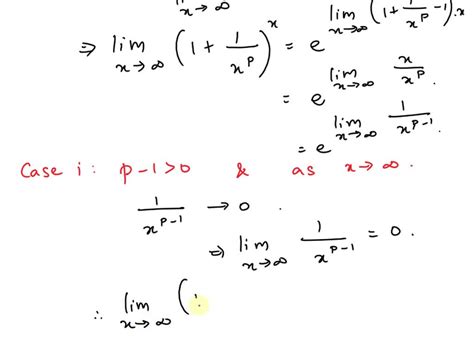 lim x→∞ (1 + 1/x^p - 1).x
⇒ lim x→∞ (1 + 1/x^p)^x = e
= e^{lim x→∞ x/x^p}
= e^{lim x→∞ 1/x^{p-1}}.
Case i: p-1>0 & as x→∞.
1/x^{p-1} → 0.
⇒ lim x→∞ 1/x^{p-1} = 0.
∴ lim x→∞ (